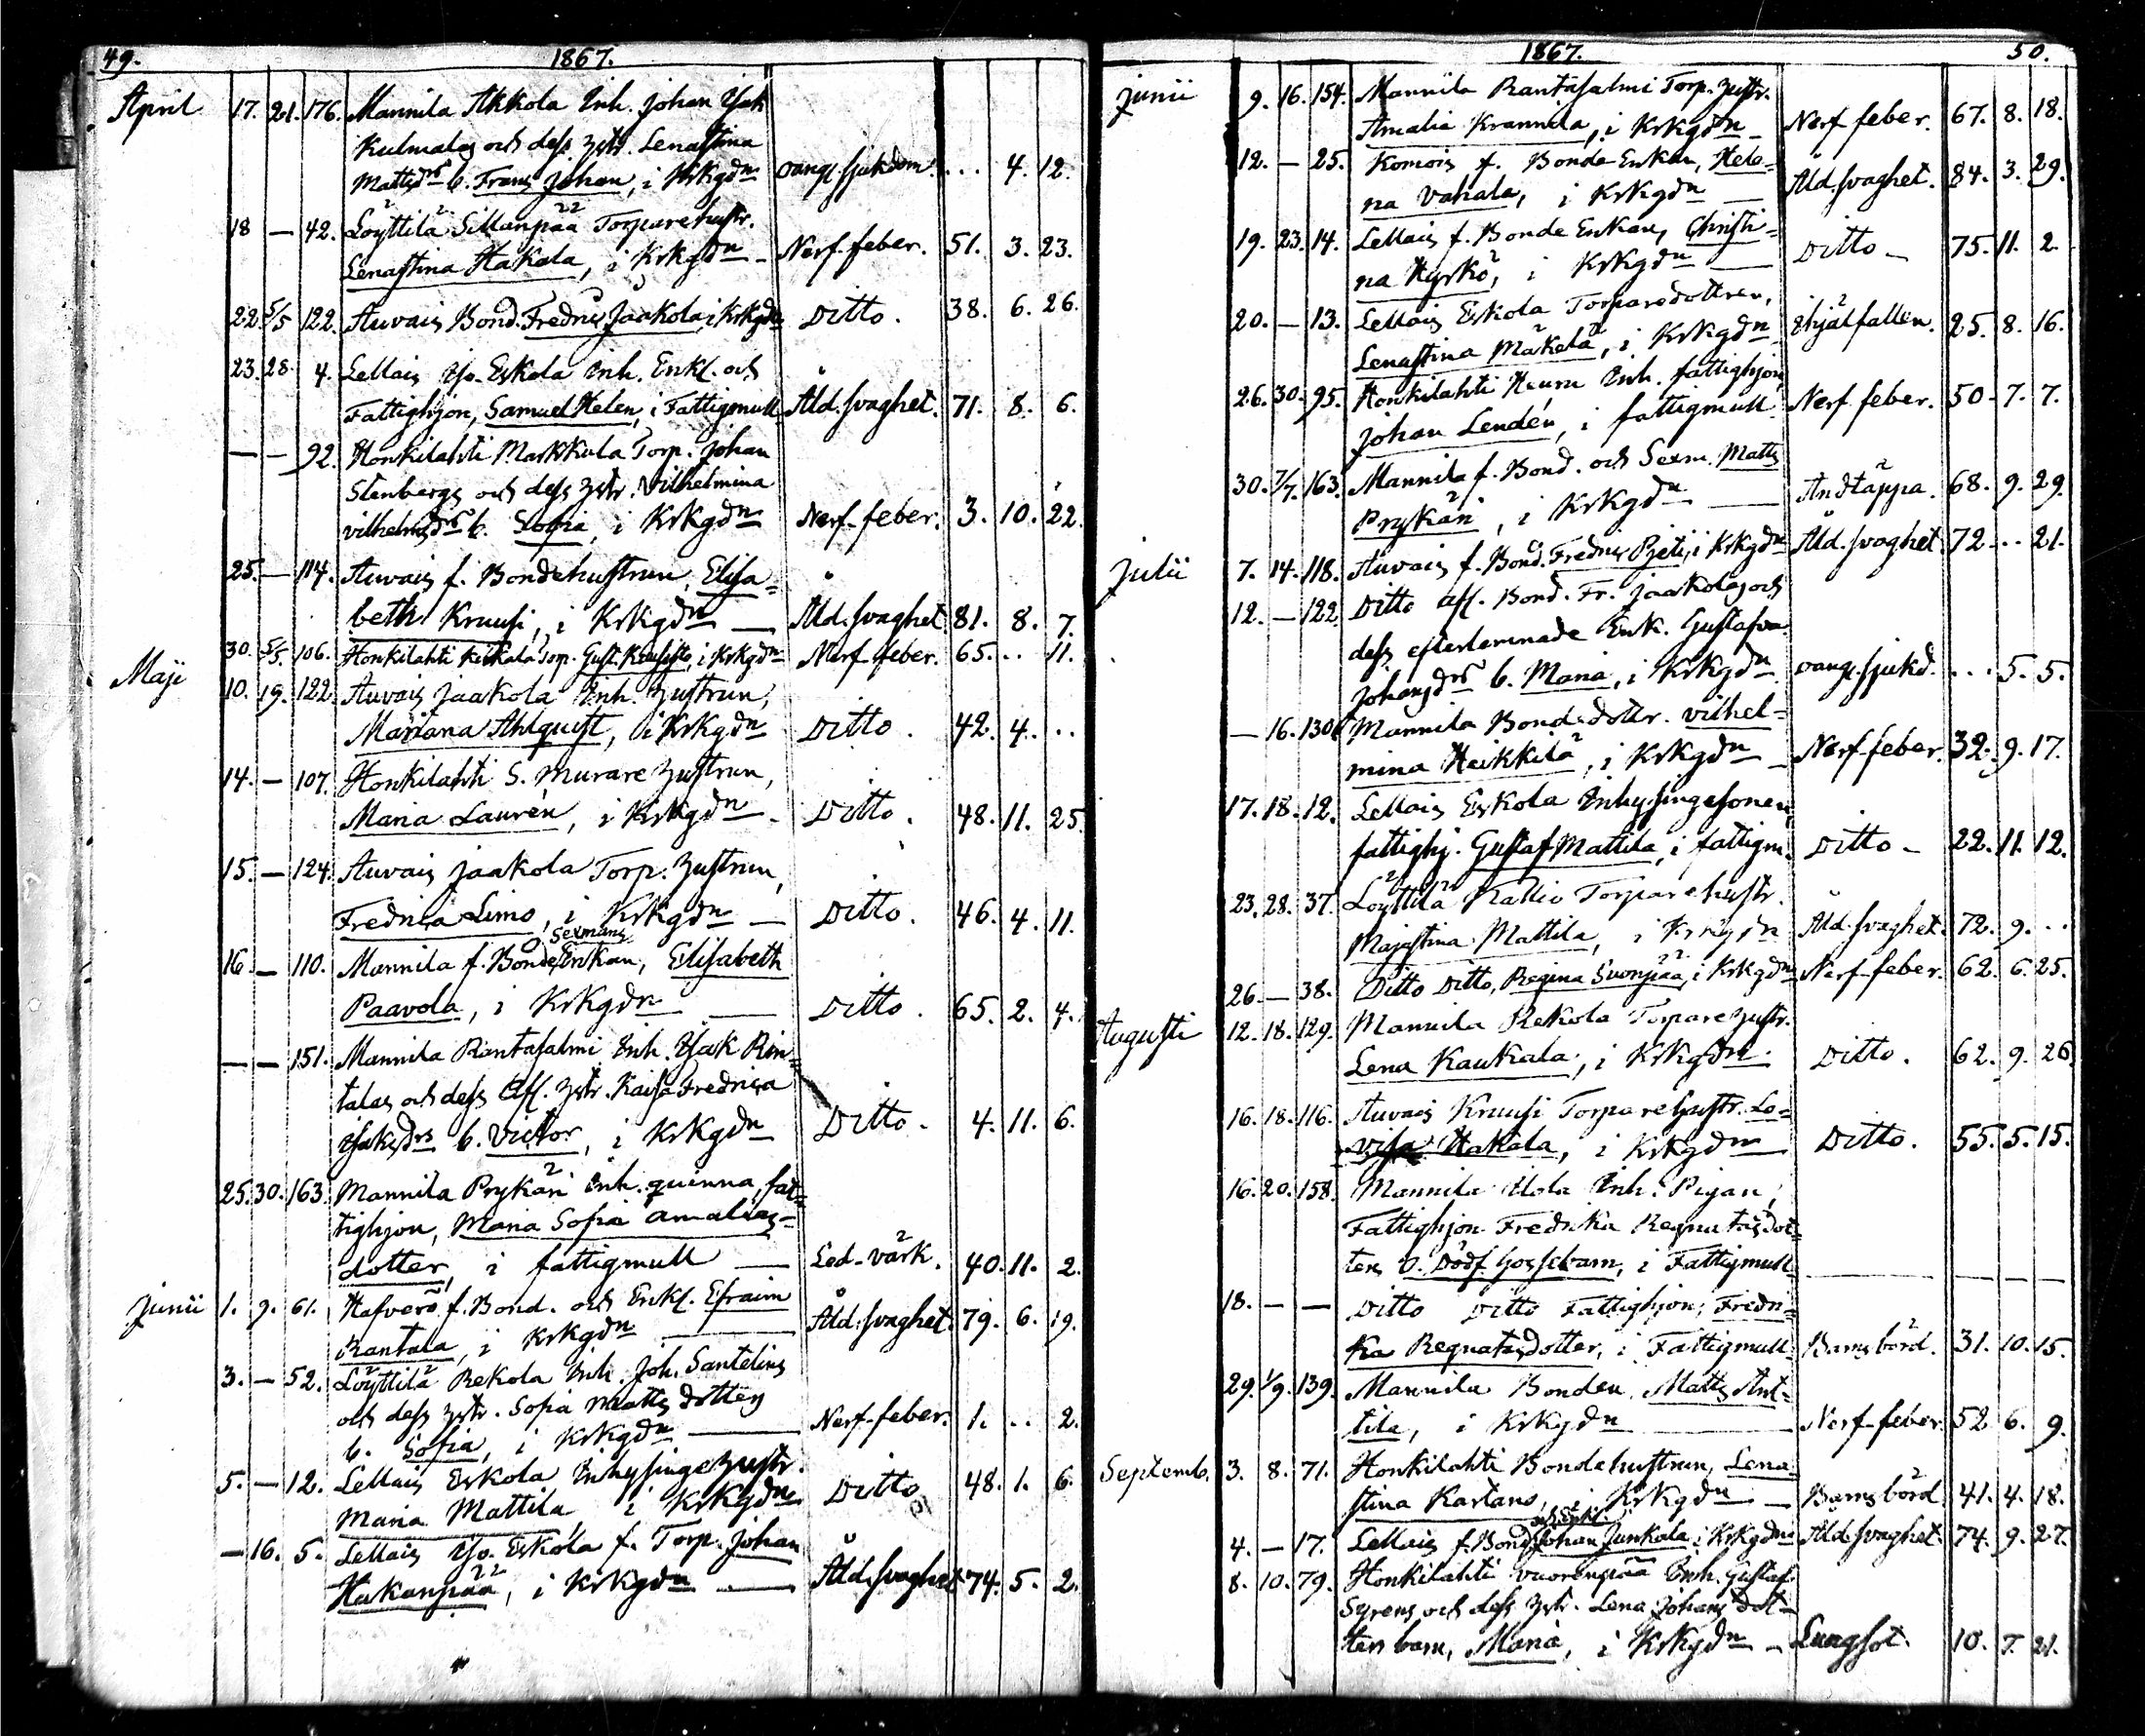 49. 1867.
April 17. 21. 176. Mannila Akkola Inh. Johan Isak
Kulmalas och dess hstr. Lenastina
Mattsdrs b. Frans Johan, i Krkgdn oangl. sjukdom. .. 4. 12.
18 — 42. Löyttilä Sillanpää Torparehustr.
Lenastina Hakala, i Krkgdn - Nerf-feber. 51. 3. 23.
22. 5/5 122. Auvais Bond. Fredric Jaakola, i Krkgdn Ditto. 38. 6. 26.
23. 28. 4. Lellais Iso-Eskola Inh. Enkl. och
Fattighjon, Samuel Helen, i Fattigmull Åld.svaghet. 71. 8. 6.
— — 92. Honkilahti Markkula Torp. Johan
Stenbergs och dess hstr. Vilhelmina
Vilhelmsdrs b. Sofia, i Krkgdn Nerf-feber. 3. 10. 22.
25. — 114. Auvais f. Bondehustrun, Elisa-
beth Kruusi, i Krkgdn — Åld.svaghet. 81. 8. 7.
30. 5/5. 106. Honkilahti Torp. Gust. i Krkgdn Nerf-feber. 65. .. 11.
Maji 10. 19. 122. Auvais Jaakola Inh. hustrun,
Mariana Ahlquist, i Krkgdn Ditto. 42. 4. ..
14. — 107. Honkilahti S. Murarehustrun,
Maria Laurén, i Krkgdn - Ditto. 48. 11. 25.
15. — 124. Auvais Jaakola Torp. hustrun,
Fredrica Simo, i Krkgdn — Ditto. 46. 4. 11.
Sexmans
16. — 110. Mannila f. Bonde Enkan, Elisabeth
Paavola, i Krkgdn — Ditto. 65. 2. 4.
— — 151. Mannila Rantasalmi Inh. Isak Rin-
talas och dess Afl. hstr. Kaisa Fredrica
Isaksdrs b. Victor, i Krkgdn Ditto. 4. 11. 6.
25. 30. 163. Mannila Prykäri Inh. quinna, fat-
tighjon, Maria Sofia Amalias-
dotter, i fattigmull — Led-värk. 40. 11. 2.
Junii 1. 9. 61. Hafverö f. Bond. och Enkl. Efraim
Rantala, i Krkgdn — Åld.svaghet. 79. 6. 19.
3. — 52. Löyttilä Rekola Inh. Joh. Santelins
och dess hstr. Sofia Mattsdotters
b. Sofia, i Krkgdn — Nerf-feber. 1. .. 2.
5. — 12. Lellais Eskola Inhysingehustr.
Maria Mattila, i Krkgdn Ditto 48. 1. 6.
— 16. 5. Lellais Iso-Eskola f. Torp. Johan
Hakanpää, i Krkgdn — Åld.svaghet 74. 5. 2.
1867. 50.
Junii 9. 16. 154. Mannila Rantasalmi Torp. hustr.
Amalia Krannila, i Krkgdn - Nerf feber. 67. 8. 18.
12. — 25. Komois f. Bonde Enkan, Hele-
na Vahala, i Krkgdn — Åld.svaghet. 84. 3. 29.
19. 23. 14. Lellais f. Bonde Enkan, Christi-
na Kyrkö, i Krkgdn — Ditto - 75. 11. 2.
20. — 13. Lellais Eskola Torparedottren,
Lenastina Mäkelä, i Krkgdn ihjälfallen. 25. 8. 16.
26. 30. 95. Honkilahti Heuru Inh. fattighjon,
Johan Lendén, i fattigmull Nerf feber. 50. 7. 7.
30. 7/7. 163. Mannila f. Bond. och Sexm. Matts
Prykäri, i Krkgdn — Andtäppa. 68. 9. 29.
Julii 7. 14. 118. Auvais f. Bond. Fredric Pjeti, i Krkgdn Åld.svaghet 72 .. 21.
12. — 122 Ditto afl. Bond. Fr. Jaakolas och
dess efterlemnade Enk. Gustafva
Johansdrs b. Maria, i Krkgdn oangl. sjukd. .. 5. 5.
— 16. 130. Mannila Bondedottr. Vilhel-
mina Heikkilä, i Krkgdn - Nerf-feber. 32. 9. 17.
17. 18. 12. Lellais Eskola Inhysingesonen,
fattighj. Gustaf Mattila, i fattigm. Ditto - 22. 11. 12.
23. 28. 37. Löyttilä Kallio Torparehustr.
Majastina Mattila, i Krkgdn Åld.svaghet. 72. 9. ..
26. — 38. Ditto Ditto, Regina Suonpää, i Krkgdn Nerf-feber. 62. 6. 25.
Augusti 12. 18. 129. Mannila Rekola Torparehustr.
Lena Kaukala, i Krkgdn. Ditto. 62. 9. 26
16. 18. 116. Auvais Kruusi Torparehustr. Lo-
visa Hakala, i Krkgdn Ditto. 55. 5. 15.
16. 20. 158. Mannila Uola Inh. Pigan,
Fattighjon Fredrika Regnatasdot-
ters o. Dödf. Gossebarn, i Fattigmull
18. — — Ditto Ditto Fattighjon, Fredri-
ka Regnatasdotter, i Fattigmull Barnsbörd. 31. 10. 15.
29. 1/9. 139. Mannila Bonden Matts Ant-
tila, i Krkgdn — Nerf-feber. 52 6. 9.
Septemb. 3. 8. 71. Honkilahti Bondehustrun, Lena
stina Kartano, i Krkgdn — Barnsbörd 41. 4. 18.
och Enkl.
4. — 17. Lellais f. Bond Johan Junkola i Krkgdn Åld.svaghet. 74. 9. 27.
8. 10. 79. Honkilahti Vuorenpää Inh. Gustaf
Syrens och dess hstr. Lena Johans dot-
ters barn, Maria, i Krkgdn - Lungsot. 10. 7. 21.